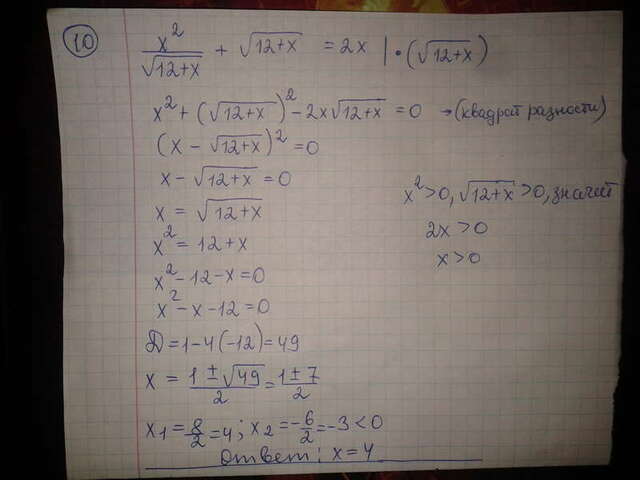 10
x²/√(12+x) + √(12+x) = 2x | • (√(12+x))
x² + (√(12+x))² - 2x√(12+x) = 0 → (квадрат разности)
(x - √(12+x))² = 0
x - √(12+x) = 0
x = √(12+x)
x² = 12+x
x² - 12 - x = 0
x² - x - 12 = 0
D = 1 - 4(-12) = 49
x = (1 ± √49)/2 = (1 ± 7)/2
x₁ = 8/2 = 4; x₂ = -6/2 = -3 < 0
Ответ: x = 4
x² > 0, √(12+x) > 0, значит
2x > 0
x > 0